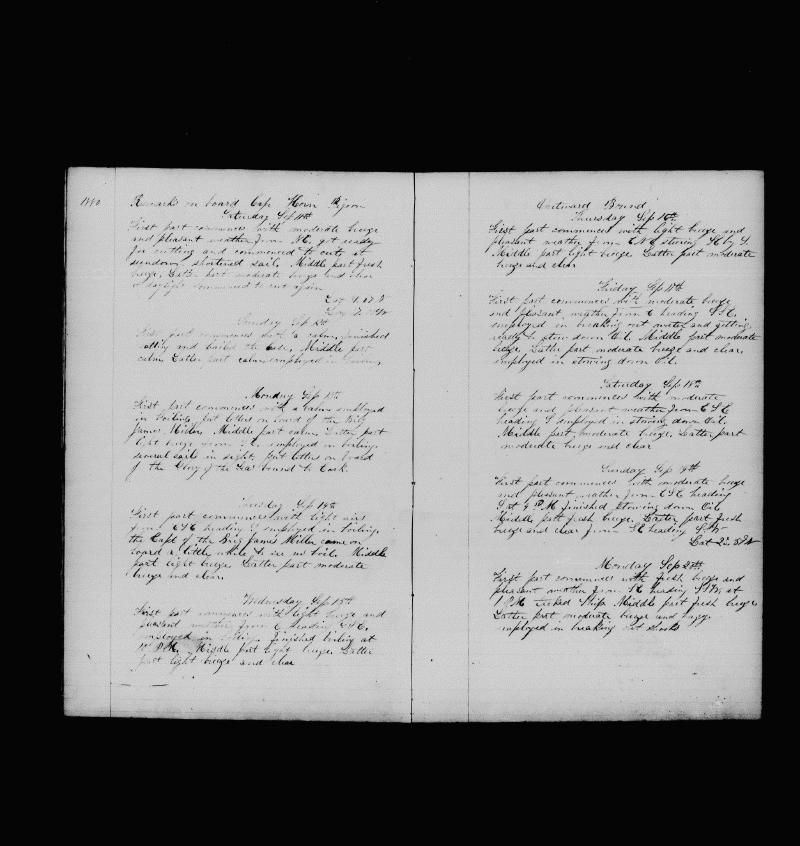 Remarks on board Cap Horn Pigeon
Saturday Sep 11th
First part commences with moderate breeze
and pleasant weather from NE. got ready
for cutting and commenced to cut, at
sundown shortened sail. Middle part fresh
breeze, Latter part moderate breeze and clear
daylight commenced to cut again
Sunday Sep 12th
First part commences with a calm, finished
cutting and boiled the Middle part
calm Latter part calm employed in
Monday Sep 13th
First part commences with a calm employed
in boiling, put letters on board of the Brig
James Miller, Middle part calm, Latter part
light breeze from employed in boiling,
several sails in sight, put letters on board
of the Glory of the Seas bound to Cork
Tuesday Sep 14th
First part commences with light airs
from ESE heading S employed in boiling,
the Capt of the Brig James Miller came on
board a little while to see us boil. Middle
part light breeze Latter part moderate
breeze and clear,
Wednesday Sep 15th
First part commences with light breeze and
pleasant weather from E heading
employed in boiling, finished boiling at
PM, Middle part light breeze, Latter
part light breeze and clear
Outward Bound,
Thursday Sep 16th
First part commences with light breeze and
pleasant weather from ENE steering SE by S.
Middle part light breeze Latter part moderate
breeze and clear
Friday Sep 17th
First part commences with moderate breeze
and pleasant weather from E heading
employed in breaking out water and getting
ready to stow down Oil. Middle part moderate
breeze, Latter part moderate breeze and clear,
employed in stowing down Oil.
Saturday Sep 18th
First part commences with moderate
breeze and pleasant weather from ESE
heading S employed in stowing down Oil.
Middle part moderate breeze, Latter part
moderate breeze and clear
Sunday Sep 19th
First part commences with moderate breeze
and pleasant weather from ESE heading
S at 4 PM finished stowing down Oil
Middle part fresh breeze, Latter part fresh
breeze and clear from SE heading
Monday Sep 20th
First part commences with fresh breeze and
pleasant weather from SE heading at
1 PM tacked Ship Middle part fresh breeze
Latter part moderate breeze and
employed in breaking out shooks